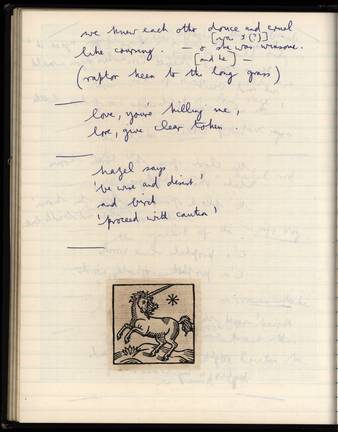 we knew each other douce and cruel
like coursing. — o she was winsome.
[and he] —
(raptor keen to the long grass)
love, you're killing me,
love, give clear token.
hazel says
'be wise and desist'
and birch
'proceed with caution'